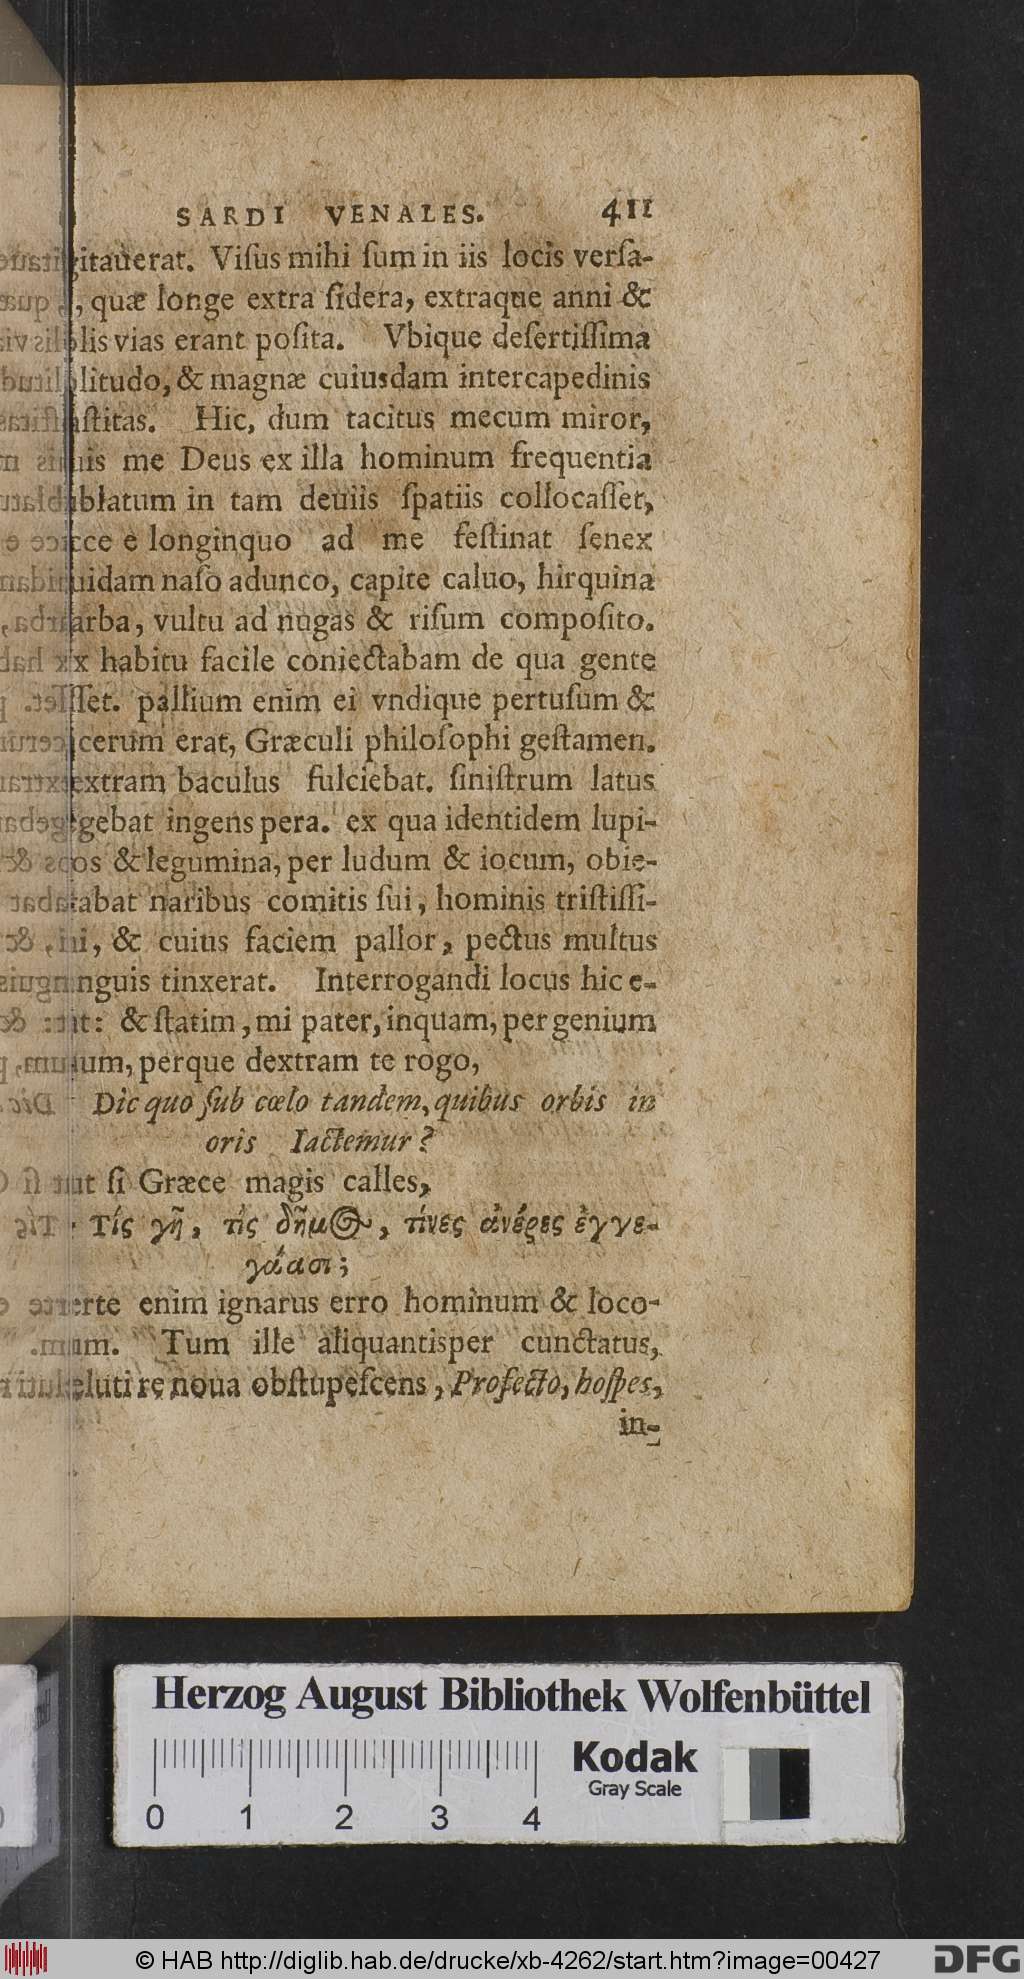 SARDI VENALES. 411
gitauerat. Viſus mihi ſum in iis locis verſa-
, quæ longe extra ſidera, extraque anni &
lis vias erant poſita. Vbique deſertiſſima
litudo, & magnæ cuiusdam intercapedinis
ſtitas. Hic, dum tacitus mecum miror,
uis me Deus ex illa hominum frequentia
blatum in tam deuiis ſpatiis collocaſſet,
cce e longinquo ad me feſtinat ſenex
uidam naſo adunco, capite caluo, hirquina
arba, vultu ad nugas & riſum compoſito.
x habitu facile coniectabam de qua gente
ſſet. pallium enim ei vndique pertuſum &
cerum erat, Græculi philoſophi geſtamen.
extram baculus fulciebat. ſiniſtrum latus
gebat ingens pera. ex qua identidem lupi-
os & legumina, per ludum & iocum, obie-
abat naribus comitis ſui, hominis triſtiſſi-
i, & cuius faciem pallor, pectus multus
nguis tinxerat. Interrogandi locus hic e-
t: & ſtatim, mi pater, inquam, per genium
um, perque dextram te rogo,
Dic quo ſub cœlo tandem, quibus orbis in
oris Iactemur?
ut ſi Græce magis calles,
Τίς γῆ, τίς δῆμος, τίνες ἀνέρες ἐγγε-
γάασι;
erte enim ignarus erro hominum & loco-
um. Tum ille aliquantisper cunctatus,
eluti re noua obſtupeſcens, Profecto, hoſpes,
in-
Herzog August Bibliothek Wolfenbüttel
Kodak
Gray Scale
0 1 2 3 4
© HAB http://diglib.hab.de/drucke/xb-4262/start.htm?image=00427
DFG